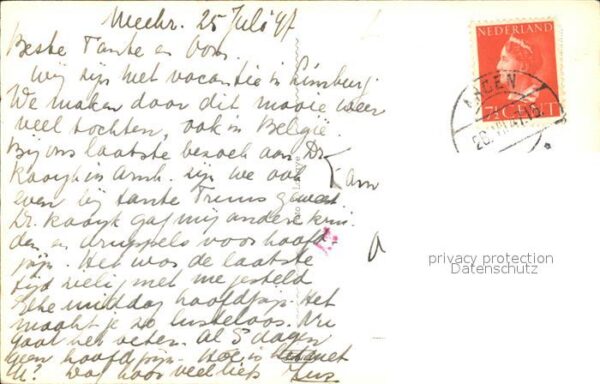 Meehr. 25 Juli 47
Beste Tante en Oom.
Wij zijn met vacantie in Limburg.
We maken door dit mooie weer
veel tochten, ook in België.
Bij ons laatste bezoek aan Dr.
Kaayk in Arnh. zijn we ook
even bij tante Truus geweest.
Dr. Kaayk gaf mij andere krui
den en druppels voor hoofd
pijn. Het was de laatste
tijd met me gesteld
Elke middag hoofdpijn. Het
maakt je zo lusteloos. Nu
gaat het beter. Al 5 dagen
geen hoofdpijn. Hoe is het met
U? Dag hoor veel liefs
NEDERLAND
7½ CENT
privacy protection
Datenschutz